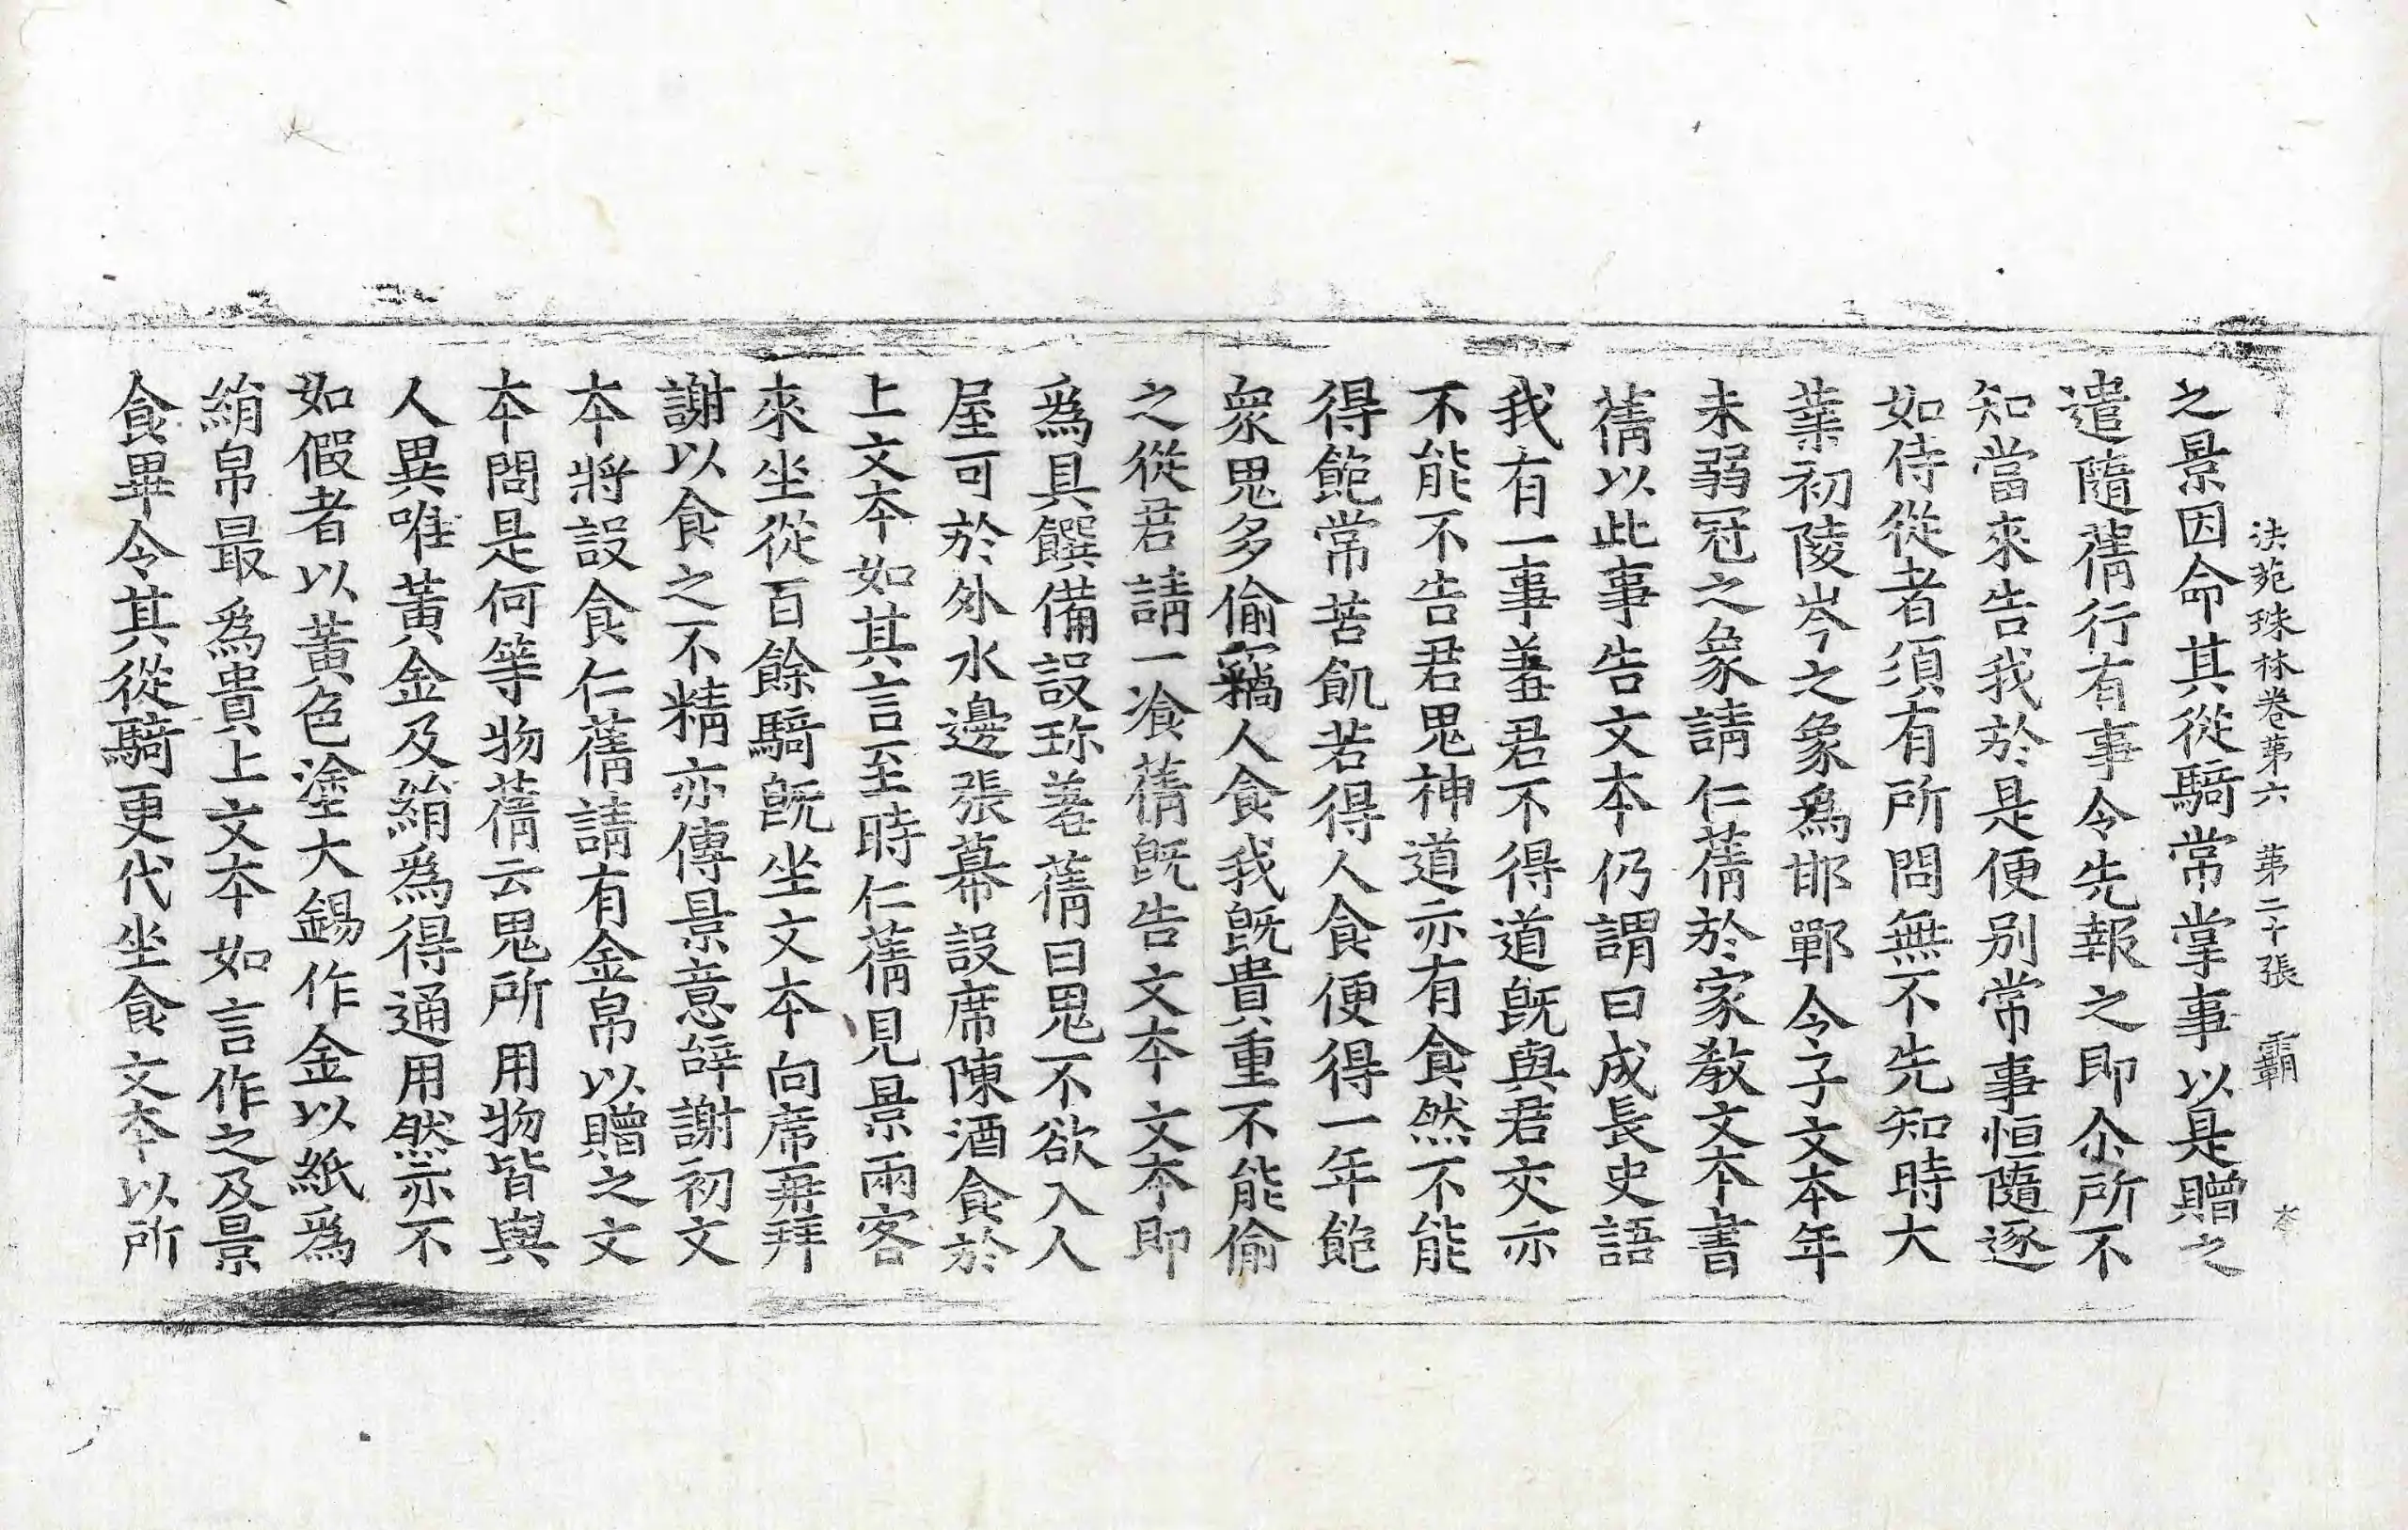 法苑珠林卷第六 第二十張 霸
之景因命其從騎常掌事以是贈之
遣隨蒨行有事令先報之即尒所不
知當來告我於是便別常事恒隨逐
如侍從者須有所問無不先知時大
業初陵岑之象爲邯鄲令子文本年
未弱冠之象請仁蒨於家教文本書
蒨以此事告文本仍謂曰成長史語
我有一事羞君不得道旣與君交亦
不能不告君鬼神道亦有食然不能
得飽常苦飢若得人食便得一年飽
衆鬼多偷竊人食我旣貴重不能偷
之從君請一飡蒨旣告文本文本即
爲具饌備設珎羞蒨曰鬼不欲入人
屋可於外水邊張幕設席陳酒食於
上文本如其言至時仁蒨見景兩客
來坐從百餘騎旣坐文本向席再拜
謝以食之不精亦傳景意辝謝初文
本將設食仁蒨請有金帛以贈之文
本問是何等物蒨云鬼所用物皆與
人異唯黃金及絹爲得通用然亦不
如假者以黃色塗大錫作金以紙爲
絹帛最爲貴上文本如言作之及景
食畢令其從騎更代坐食文本以所